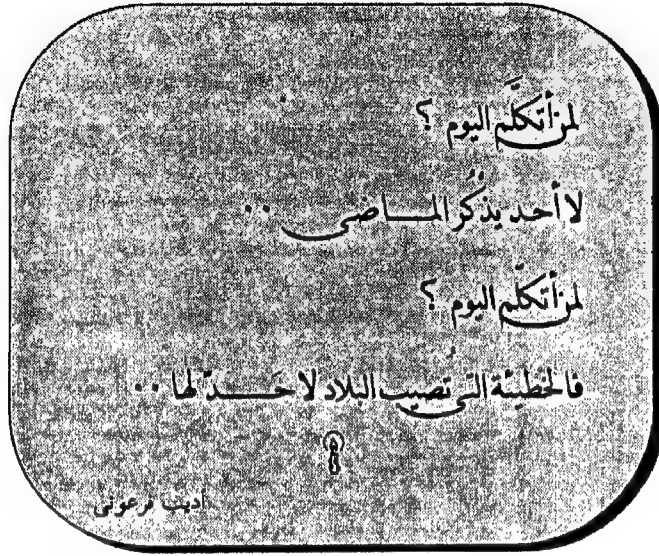 لمن أتكلَّم اليوم ؟
لا أحد يذكُر المـــاضى ..
لمن أتكلّم اليوم ؟
فالخطيئة التى تُصيب البلاد لا حَـــدّ لها ..
أديب فرعونى